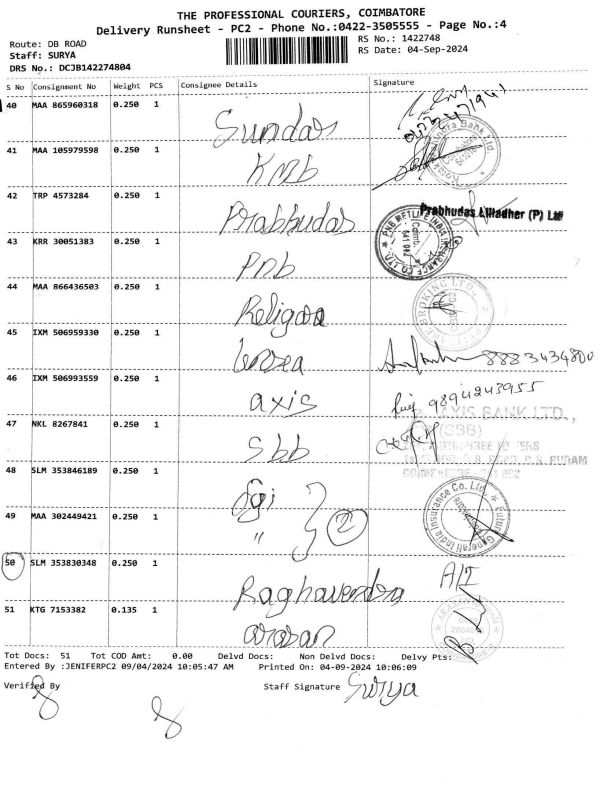 THE PROFESSIONAL COURIERS, COIMBATORE
Delivery Runsheet - PC2 - Phone No.:0422-3505555 - Page No.:4
Route: DB ROAD
RS No.: 1422748
Staff: SURYA
RS Date: 04-Sep-2024
DRS No.: DCJB142274804
S No Consignment No Weight PCS Consignee Details Signature
40 MAA 865960318 0.250 1
Sundar
41 MAA 105979598 0.250 1
KMB
42 TRP 4573284 0.250 1
Prabhudas
Prabhudas Lilladher (P) Ltd
43 KRR 30051383 0.250 1
PNB
PNB METLIFE INDIA INSURANCE CO. LTD.
44 MAA 866436503 0.250 1
Religare
BROKING LTD.
45 IXM 506959330 0.250 1
8883434800
46 IXM 506993559 0.250 1
axis
9894243955
AXIS BANK LTD.,
47 NKL 8267841 0.250 1
SBB
(CBB)
48 SLM 353846189 0.250 1
Fgi
49 MAA 302449421 0.250 1
" 2
Future Generali India Insurance Co. Ltd.
50 SLM 353830348 0.250 1
Raghavendra
51 KTG 7153382 0.135 1
Tot Docs: 51 Tot COD Amt: 0.00 Delvd Docs: Non Delvd Docs: Delvy Pts:
Entered By :JENIFERPC2 09/04/2024 10:05:47 AM Printed On: 04-09-2024 10:06:09
Verified By
Staff Signature Surya